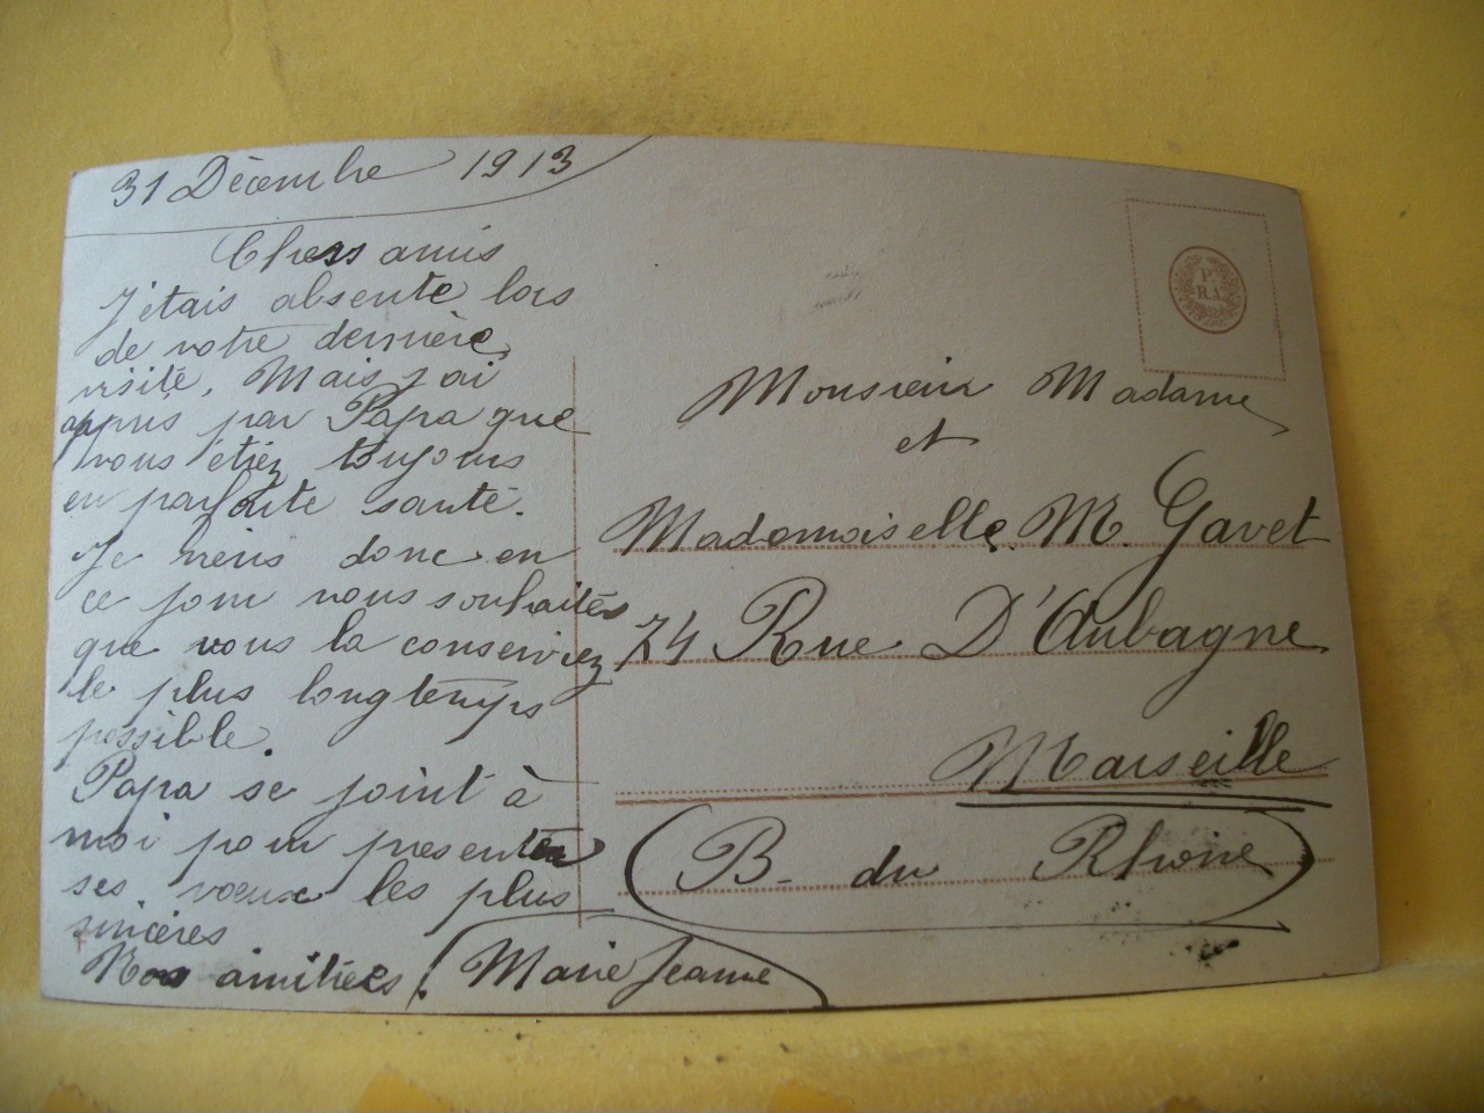 31 Décembre 1913
Chers amis
J'étais absente lors
de votre dernière
visite. Mais j'ai
appris par Papa que
vous étiez toujours
en parfaite santé.
Je viens donc en
ce jour vous souhaiter
que vous la conserviez
le plus longtemps
possible.
Papa se joint à
moi pour presenter
ses voeux les plus
sincères
Nos amitiées
Marie Jeanne
P.
R.A.
Monsieur Madame
et
Mademoiselle M. Gavet
74 Rue D'Aubagne
Marseille
(B- du Rhône)